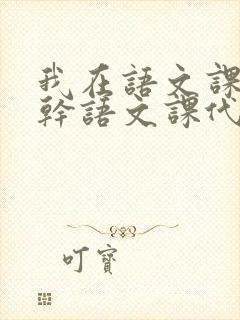 我在語文課
幹語文課代
叮寶